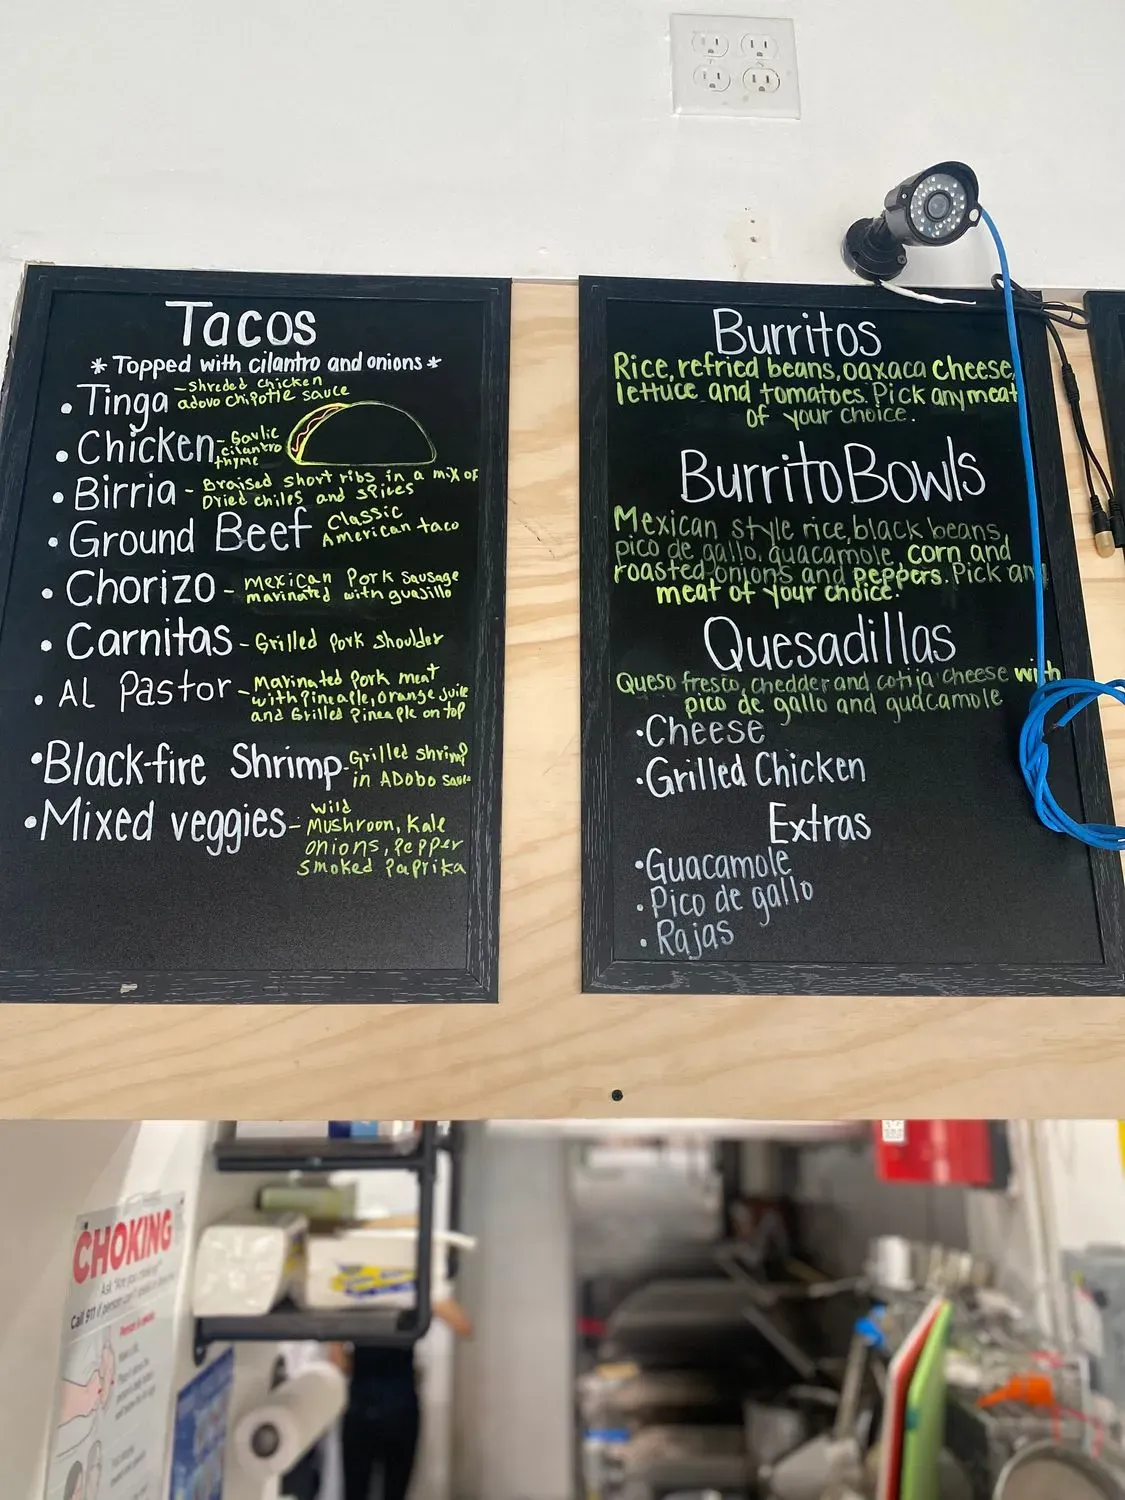 Tacos
* Topped with cilantro and onions *
• Tinga - shreded chicken
adovo chipotle sauce
• Chicken - Garlic
cilantro
thyme
• Birria - Braised short ribs in a mix of
Dried chiles and spices
• Ground Beef Classic
American taco
• Chorizo - Mexican Pork sausage
marinated with guajillo
• Carnitas - Grilled Pork shoulder
• AL Pastor - Marinated Pork meat
with Pineaple, orange juice
and Grilled Pineaple on top
• Black-fire Shrimp - Grilled shrimp
in ADobo sauce
• Mixed veggies - wild
Mushroon, Kale
onions, Pepper
Smoked Paprika
Burritos
Rice, refried beans, oaxaca cheese,
lettuce and tomatoes. Pick any meat
of your choice.
Burrito Bowls
Mexican style rice, black beans,
pico de gallo, guacamole, corn and
roasted onions and peppers. Pick any
meat of your choice.
Quesadillas
Queso fresco, chedder and cotija cheese with
pico de gallo and guacamole
• Cheese
• Grilled Chicken
Extras
• Guacamole
• Pico de gallo
• Rajas
CHOKING
Ask "Are you choking?"
Call 911 if person can't